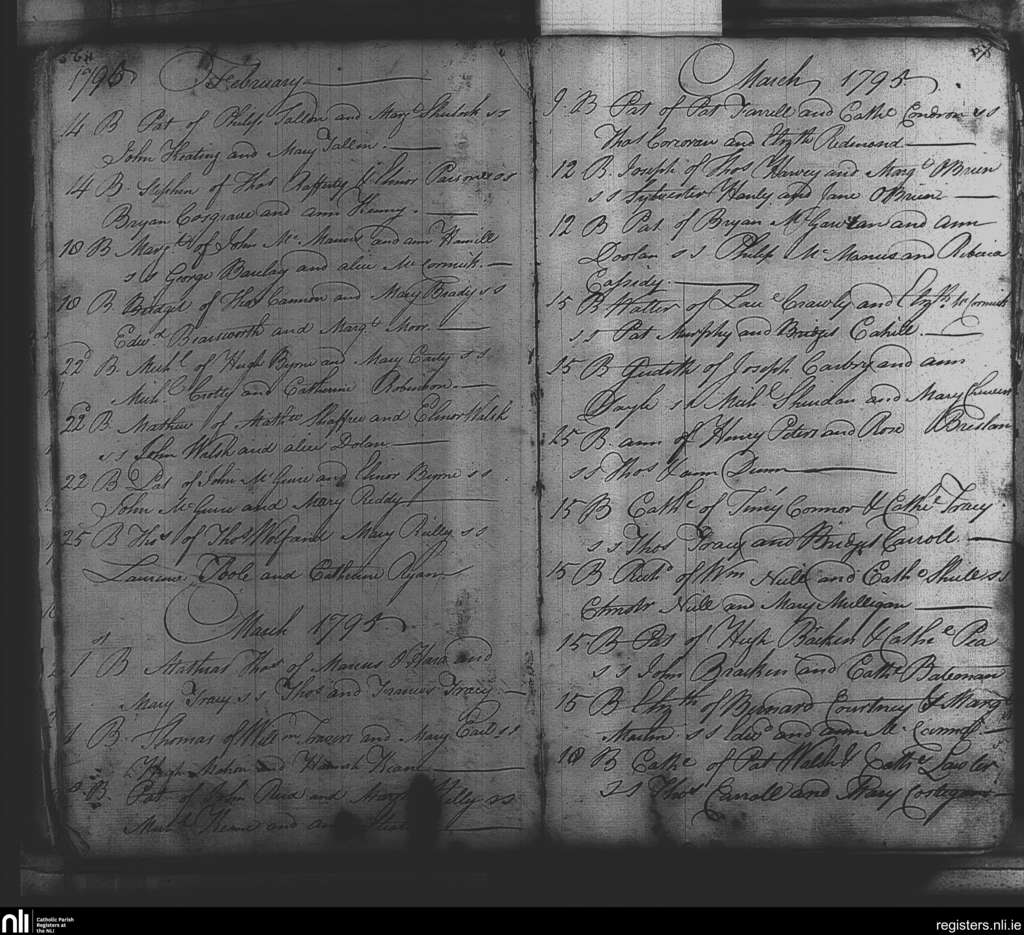 1795 February
14 B Pat of Philip Tallon and Marg.t Shulock ss
John Keating and Mary Tallon
14 B Stephen of Thos Rafferty & Elinor Parsons ss
Bryan Cosgrave and ann Kenny
18 B Marg.t of John Mc Manus and ann Hamill
ss George Barclay and alice McCormick
18 B Bridget of Thos Cannon and Mary Brady ss
Edw.d Bearsworth and Marg.t Moor
22 B Mich.l of Hugh Byrne and Mary Early ss
Mich.l Crolly and Catherine Robinson
22 B Mathew of Math.w Shaffree and Elinor Walsh
ss John Walsh and alice Dolan
22 B Pat of John McGuire and Elinor Byrne ss
John McGuire and Mary Reddy
25 B Thos of Thos Wolf and Mary Reilly ss
Laurence Toole and Catherine Ryan
March 1795
1 B Mathias Thos of Marcus O Hara and
Mary Tracy ss Thos and Frances Tracy
B Thomas of Will.m Travers and Mary Earl ss
Hugh Mahon and Hannah Keane
B Pat of John Reed and Mary Kelly ss
Mich.l Keane and
57
March 1795
9 B Pat of Pat Farrell and Cath.e Condron ss
Thos Corcoran and Eliz.th Redmond
12 B Joseph of Thos Harvey and Marg.t OBrien
ss Sylvester Hanly and Jane OBrien
12 B Pat of Bryan McGawran and ann
Doolan ss Philip McManus and Rebecca
Cassidy
15 B Walter of Law.e Crawly and Eliz.th McCormick
ss Pat Murphy and Bridget Cahill
15 B Judith of Joseph Cawry and ann
Doyle ss Mich.l Sheridan and Mary
25 B ann of Henry Peters and Rose Breslan
ss Thos & ann Dunn
15 B Cath.e of Timy Connor & Cath.e Tracy
ss Thos Tracy and Bridget Carroll
15 B Rich.d of Wm Neill and Cath.e Shiell ss
Christ.r Neill and Mary Mulligan
15 B Pat of Hugh Bracken & Cath.e Rea
ss John Bracken and Cath.e Bateman
15 B Eliz.th of Bernard Courtney & Marg.t
Martin ss Edw.d and ann
18 B Cath.e of Pat Walsh & Cath.e Lawler
ss Thos Carroll and Mary Costegan
nli Catholic Parish
Registers at
the NLI
registers.nli.ie